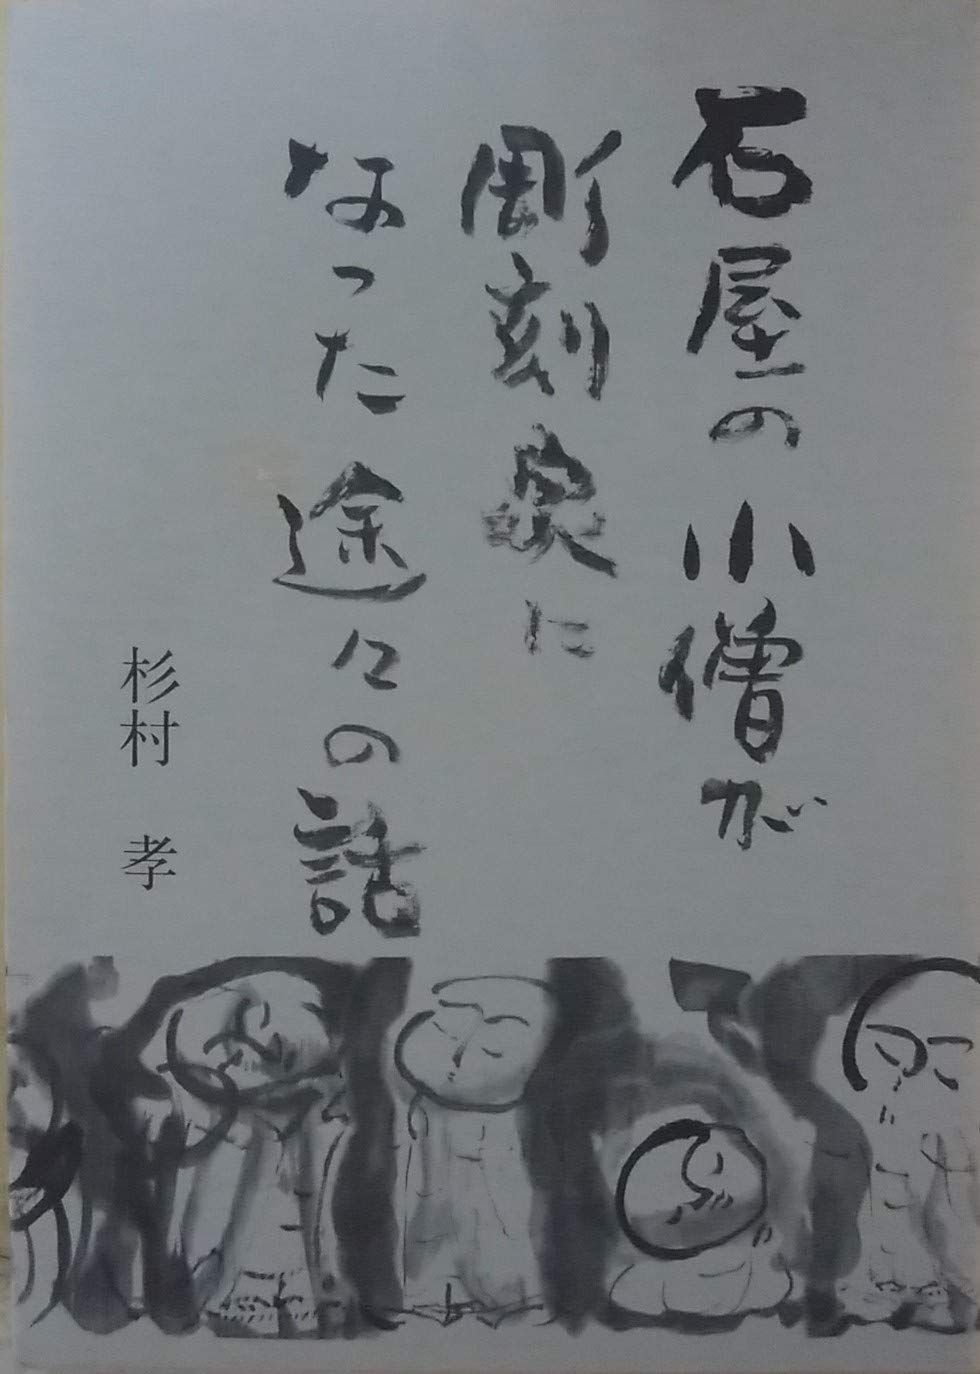 石屋の小僧が
彫刻家に
なった途々の話
杉村 孝